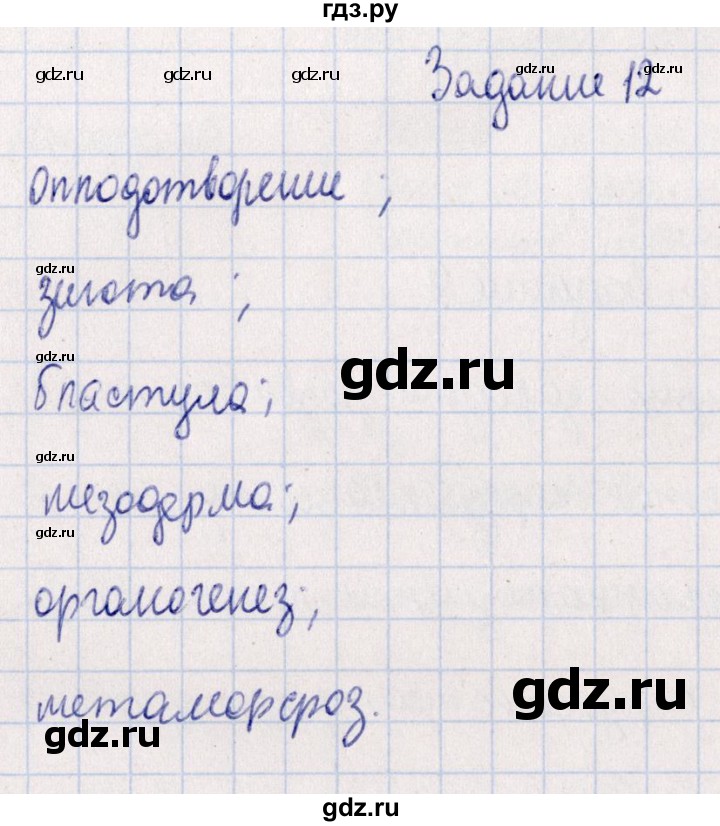 гдз.ру
gdz.ru gdz.ru gdz.ru gdz.ru gdz.ru
Задание 12
Оплодотворение ;
gdz.ru
зигота ;
gdz.ru
gdz.ru
бластула;
gdz.ru
мезодерма;
gdz.ru
органогенез;
gdz.ru
метаморфоз.
gdz.ru
gdz.ru